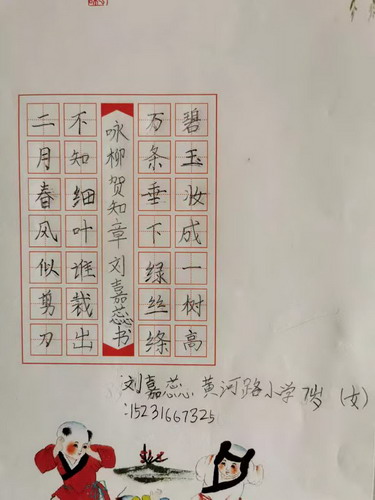 碧玉妆成一树高
万条垂下绿丝绦
咏柳贺知章刘嘉蕊书
不知细叶谁裁出
二月春风似剪刀
刘嘉蕊 黄河路小学 7岁 (女)
:15231667325